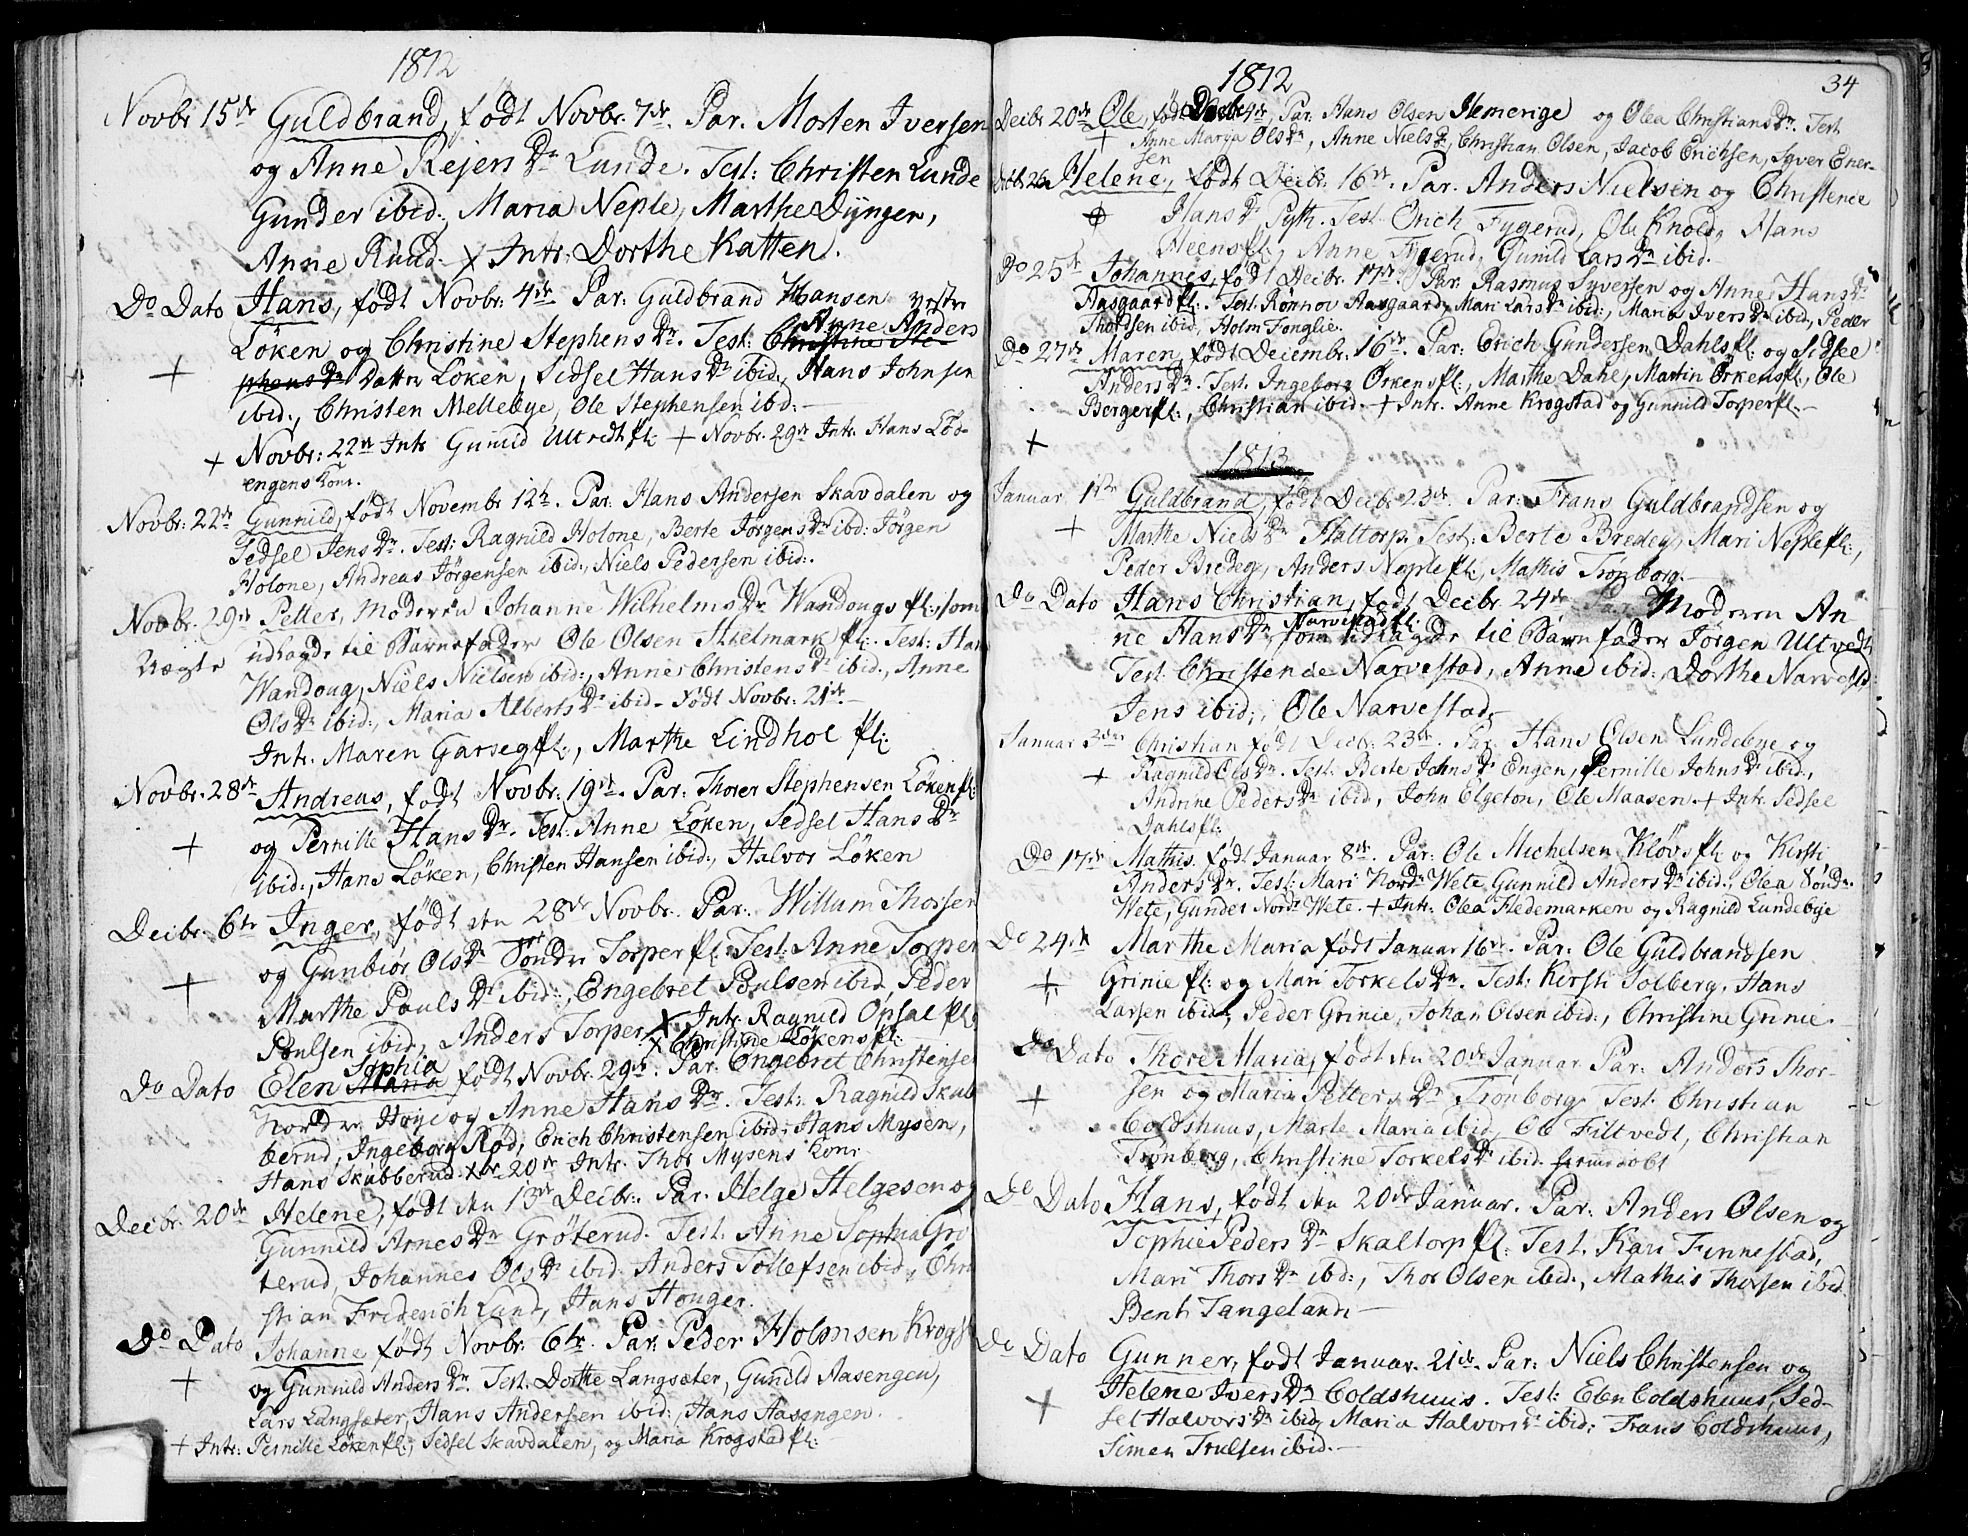 1812
Novbr 15de Guldbrand, født Novbr. 7de. Par. Morten Iversen
og Anne Rejers Dr Lunde. Test: Christen Lunde
Gunder ibid:, Maria Neple, Marthe Dyngen,
Anne Ruud. + Intr: Dorthe Katten.
Do Dato Hans, født Novbr: 4de Par: Guldbrand Hansen yrstre
Løken og Christine Stephens Dr. Test: Christine Ste- Anne Anders
+ phens Dr Datter Løken, Sidsel Hans Dr ibid:, Hans Johnsen
ibid:, Christen Mellebye, Ole Stephensen ibd:
+ Novbr: 22de Intr Gunild Ultvedt fl: + Novbr. 29de Intr. Hans Lød-
engens Kone.
Novbr: 22de Gunnild, født Novembr 12te. Par. Hans Andersen Skavdalen og
Sedsel Jens Dr. Test: Ragnild Holone, Berte Jørgens Dr ibd: Jørgen
Holone, Andreas Jørgensen ibid:, Niels Pedersen ibid:.
Novbr. 29de Petter, Moderen Johanne Wilhelms Dr Wandougs fl: som
Uægte udlagde til Barnefader Ole Olsen Hielmark fl: Test: Han
Wandoug, Niels Nielsen ibid:, Anne Christens Dr ibid., Anne
Ols Dr ibid:, Maria Alberts Dr ibid. Født Novbr: 21de.
Intr. Maren Garseg fl:, Marthe Lindhol fl:
Novbr. 28de Andreas, født Novbr. 19de. Par: Thorer Stephensen Løken fl:
+ og Pernille Hans Dr. Test: Anne Løken, Sedsel Hans Dr
ibid:, Hans Løken, Christen Hansen ibid:, Halvor Løken
Decbr. 6te Inger, født den 28de Novbr. Par. Willum Thorsen
og Gunbiør Ols Dr Søndr Torper fl: Test: Anne Torper
+ Marthe Pouls Dr ibid:, Engebret Poulsen ibid, Peder
Poulsen ibid, Anders Torper + Intr. Ragnild Opsal fl:
+ Christine Løkens fl:
Do Dato Elen Maria Sophia født Novbr. 29de. Par. Engebret Christensen
Nordre Høye og Anne Hans Dr. Test: Ragnild Skub
berud, Ingeborg Rød, Erich Christensen ibid:, Hans Mysen,
Hans Skubberud. Xbr. 20de Intr. Thor Mysens Kone
Decbr. 20de Helene, født den 13de Decbr. Par. Helge Helgesen og
Gunnild Arnes Dr Grøterud. Test. Anne Sophia Grø
terud, Johannes Ols Dr ibid. Anders Tollefsen ibid., Chri
stian Friderich Lund, Hans Houger.
Do Dato Johanne født Novbr. 6te. Par: Peder Holmsen Krogst
+ og Gunnild Anders Dr. Test. Dorthe Langsæter, Gunild Aasengen,
Lars Langsæter, Hans Andersen ibid:, Hans Aasengen.
+ Intr: Pernille Løken fl:, Sedsel Skavdalen, og Maria Krogstad fl:
1812
34
Decbr 20de Ole, født Decbr 4de, Par. Hans Olsen Hemerige og Olea Christians Dr. Test
+ Anne Marya Ols Dr, Anne Niels Dr, Christian Olsen, Jacob Erichsen, Syver Ener-
sen
Decb. 26 Helene, født Decbr. 16de. Par. Anders Nielsen og Christence
Hans Dr Pyth. Test. Erich Fygerud, Ole Knold, Hans
Heens fl:, Anne Fygerud, Gunild Lars Dr ibid.
Do 25de Johannes, født Decbr. 17de. Par. Rasmus Syversen og Anne Hans Dr
Aasgaard fl:. Test. Ronnov Aasgaard, Mari Lars Dr ibid:, Maria Ivers Dr ibid, Peder
Thordsen ibid, Holm Fonglie.
Do 27de Maren, født Decembr. 16de. Par: Erich Gundersen Dahls fl: og Sidsel
Anders Dr. Test. Ingeborg Ørkens fl:, Marthe Dahl, Martin Ørkens fl:, Ole
Berger fl:, Christian ibid. + Intr. Anne Krogstad og Gunnild Torper fl:
+
1813
Januar 1ste Guldbrand, født Decbr 23de. Par: Frans Guldbrandsen og
+ Marthe Niels Dr Haltorp Test: Berte Bredeg, Mari Neple fl:,
Peder Bredeg, Anders Neple fl:, Mathis Tronborg.
Do Dato Hans Christian, født Decbr. 24de Par Moderen An-
ne Hans Dr Narvestad fl: som udlagde til Barnefader Jørgen Ultvedt
Test. Christence Narvestad, Anne ibid:, Dorthe Narvestd:
Jens ibid:, Ole Narvestad.
Januar 3die Christian født Decbr. 23de. Par. Hans Olsen Lundebye og
Ragnild Ols Dr. Test. Berte Johns Dr Engen, Pernille Johns Dr ibid.,
+ Andrine Peders Dr ibid, John Elgeton, Ole Maasen + Intr. Sedsel
Dahls fl:
Do 17de Mathis, født Januar 8de. Par: Ole Michelsen Kløvs fl: og Kirsti
Anders Dr. Test: Mari Nordr Wete, Gunnild Anders Dr ibid:, Olea Søndr.
Wete, Gunder Nordr Wete. + Intr. Olea Hedemarken og Ragnild Lundebye
Do 24de Marthe Maria født Januar 16de. Par: Ole Guldbrandsen
+ Grinie fl: og Mari Torkels Dr. Test: Kirsti Solberg, Hans
Larsen ibid:, Peder Grinie, Johan Olsen ibid:, Christine Grinie.
Do Dato Thore Maria, født den 20de Januar. Par. Anders Thor-
+ sen og Maria Petters Dr Trønborg Test. Christian
Coldshuus, Marte Maria ibid, Ole Filtvedt, Christian
Trønborg, Christine Torkels Dr ibid. hjemmedøbt
Do Dato Hans, født den 20de Januar. Par: Anders Olsen og
Sophie Peders Dr Skaltorp fl: Test. Kari Finnestad,
Mari Thors Dr ibd:, Thor Olsen ibid:, Mathis Thorsen ibid
Bent Tangeland.
Do Dato Gunner, født Januar 21de. Par: Niels Christensen og
+ Helene Ivers Dr Coldshuus. Test: Elen Coldshuus, Sed-
sel Halvors Dr ibid, Maria Halvors Dr ibid: Frans Coldshuus,
Simen Trulsen ibid.